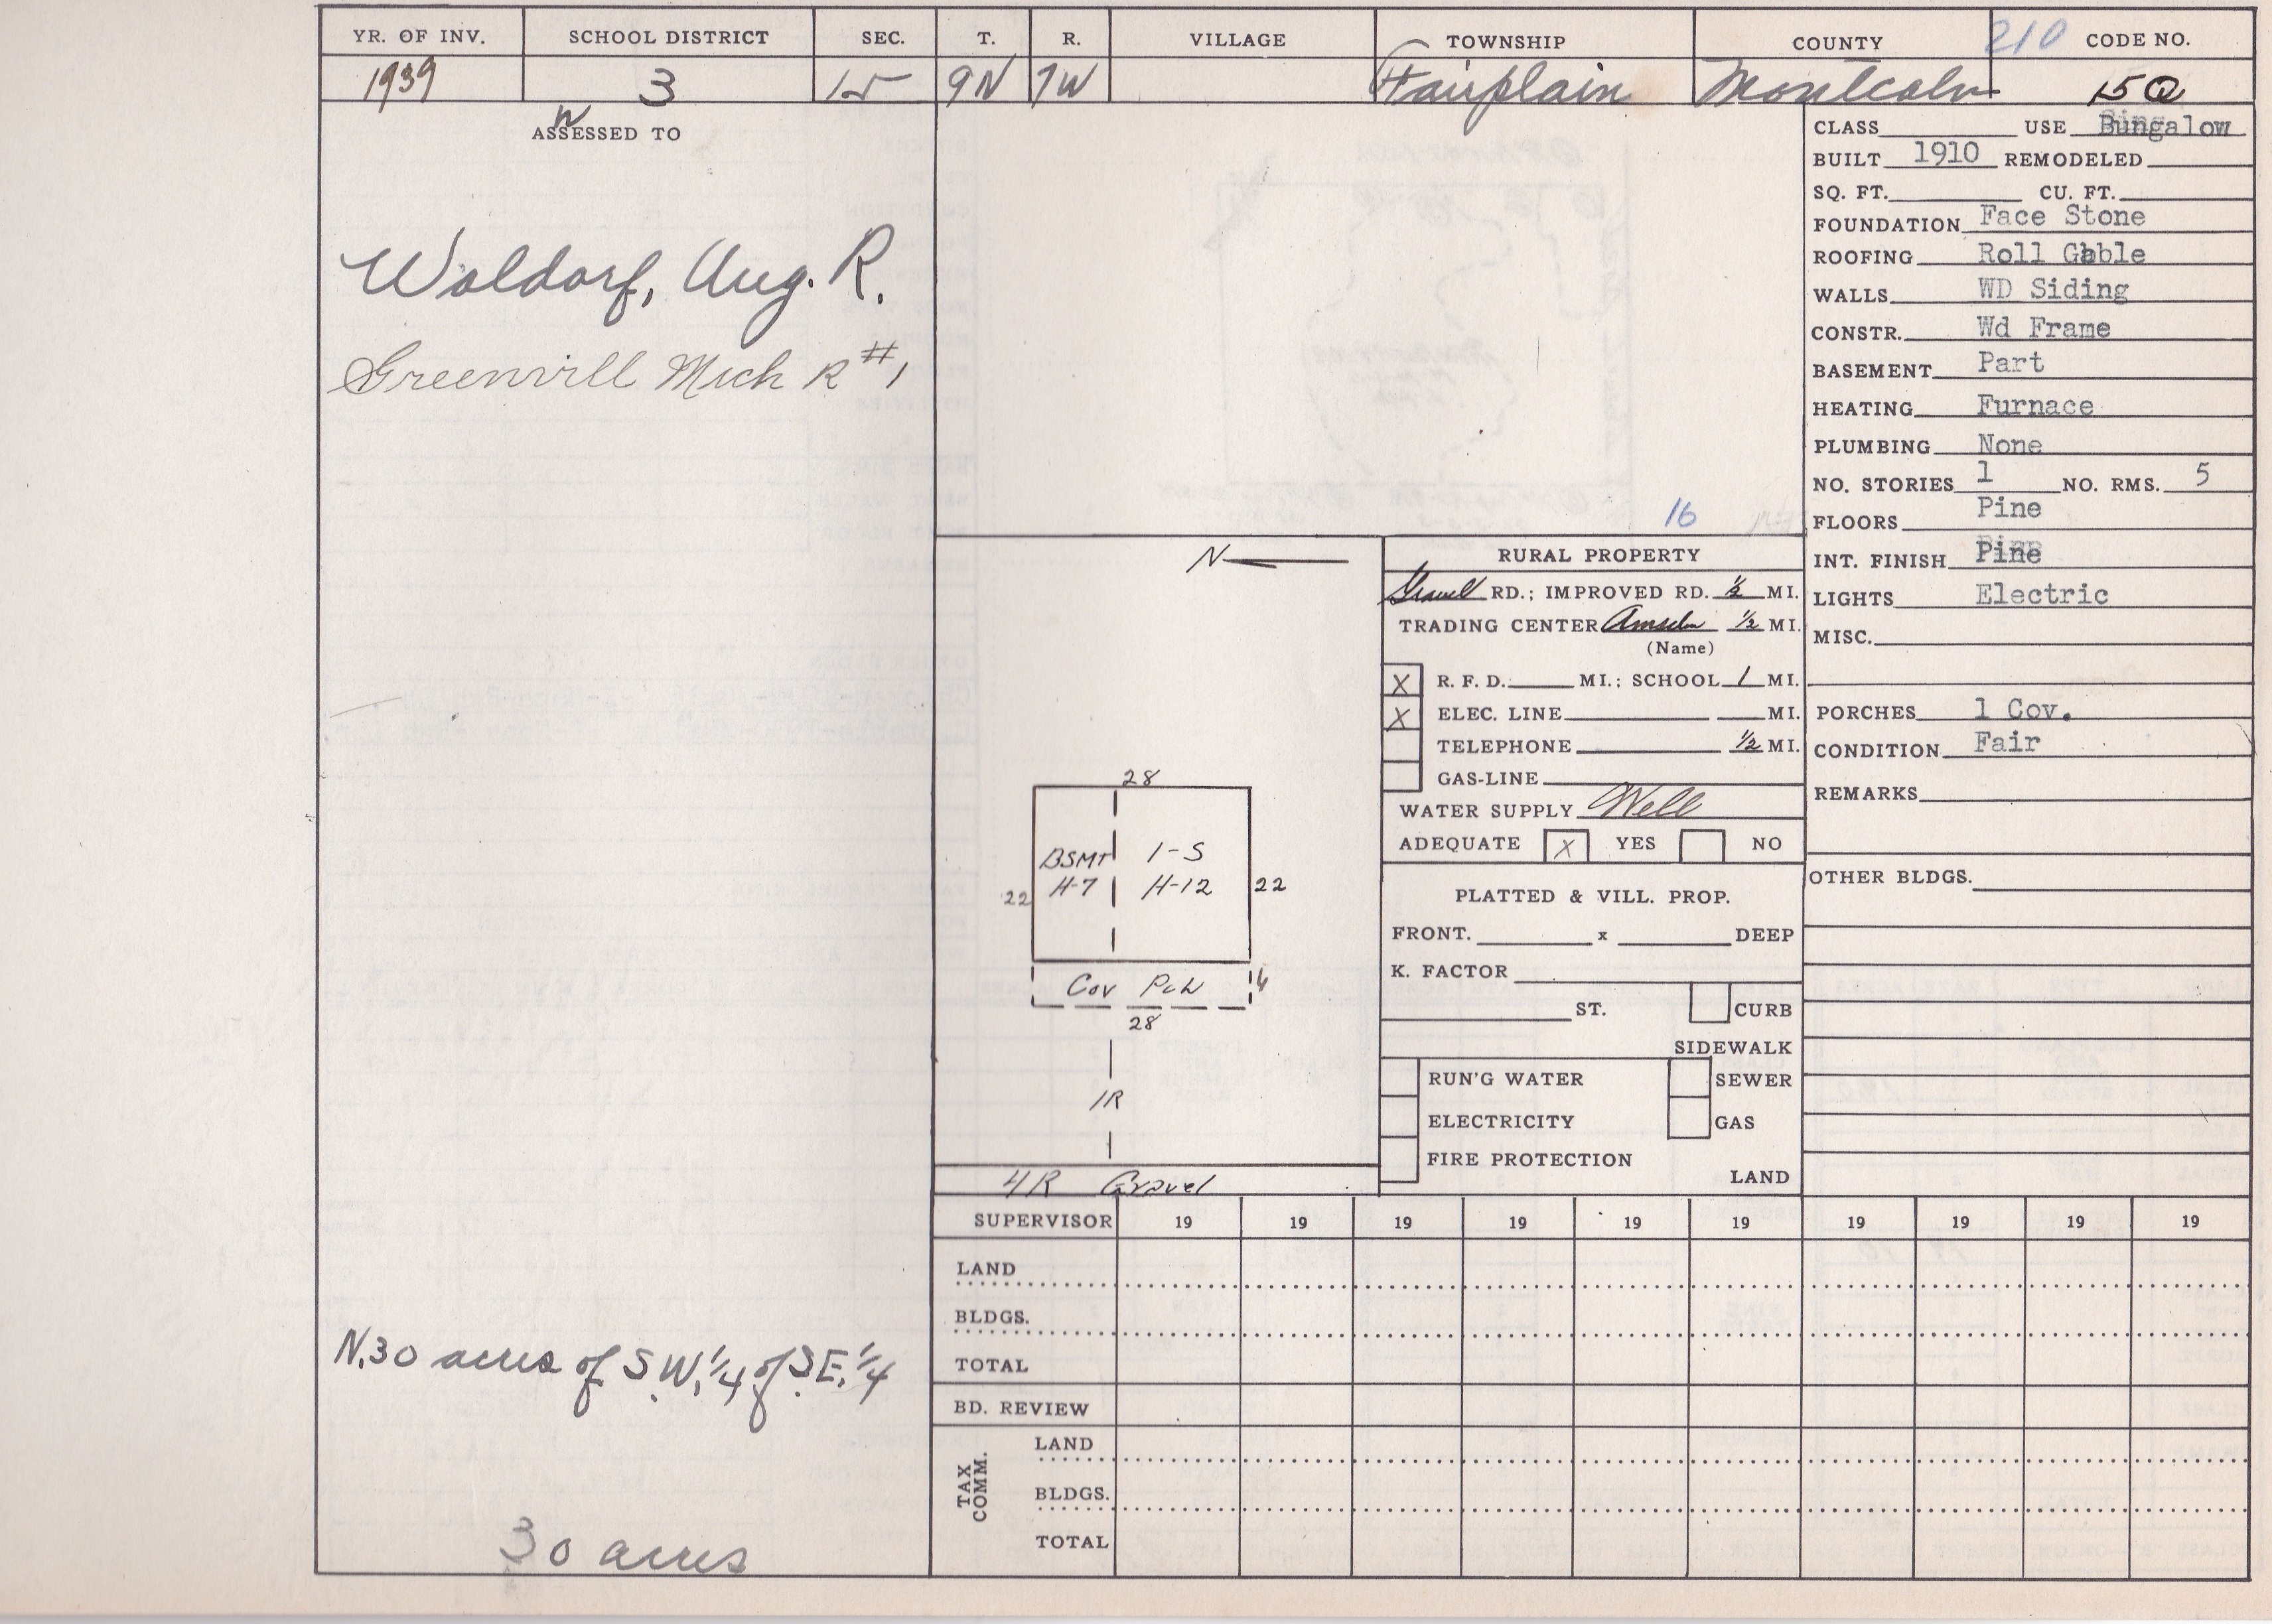 YR. OF INV. SCHOOL DISTRICT SEC. T. R. VILLAGE TOWNSHIP COUNTY 210 CODE NO.
1939 3 15 9N 7W Fairplain Montcalm 15Q
W
ASSESSED TO
Waldorf, Aug. R.
Greenvill Mich R#1
N.30 acres of S.W.1/4 of S.E.1/4
30 acres
16
N
28
BSMT 1-S
H-7 H-12
22 22
Cov Pch 4
28
1R
4R Gravel
RURAL PROPERTY
Gravell RD.; IMPROVED RD. 1/2 MI.
TRADING CENTER 1/2 MI.
(Name)
X R. F. D. MI.; SCHOOL 1 MI.
X ELEC. LINE MI.
TELEPHONE 1/2 MI.
GAS-LINE
WATER SUPPLY Well
ADEQUATE X YES NO
PLATTED & VILL. PROP.
FRONT. x DEEP
K. FACTOR
ST. CURB
SIDEWALK
RUN'G WATER SEWER
ELECTRICITY GAS
FIRE PROTECTION
LAND
CLASS USE Bungalow
BUILT 1910 REMODELED
SQ. FT. CU. FT.
FOUNDATION Face Stone
ROOFING Roll Gable
WALLS WD Siding
CONSTR. Wd Frame
BASEMENT Part
HEATING Furnace
PLUMBING None
NO. STORIES 1 NO. RMS. 5
FLOORS Pine
INT. FINISH Pine
LIGHTS Electric
MISC.
PORCHES 1 Cov.
CONDITION Fair
REMARKS
OTHER BLDGS.
SUPERVISOR 19 19 19 19 19 19 19 19 19 19
LAND
BLDGS.
TOTAL
BD. REVIEW
TAX COMM.
LAND
BLDGS.
TOTAL